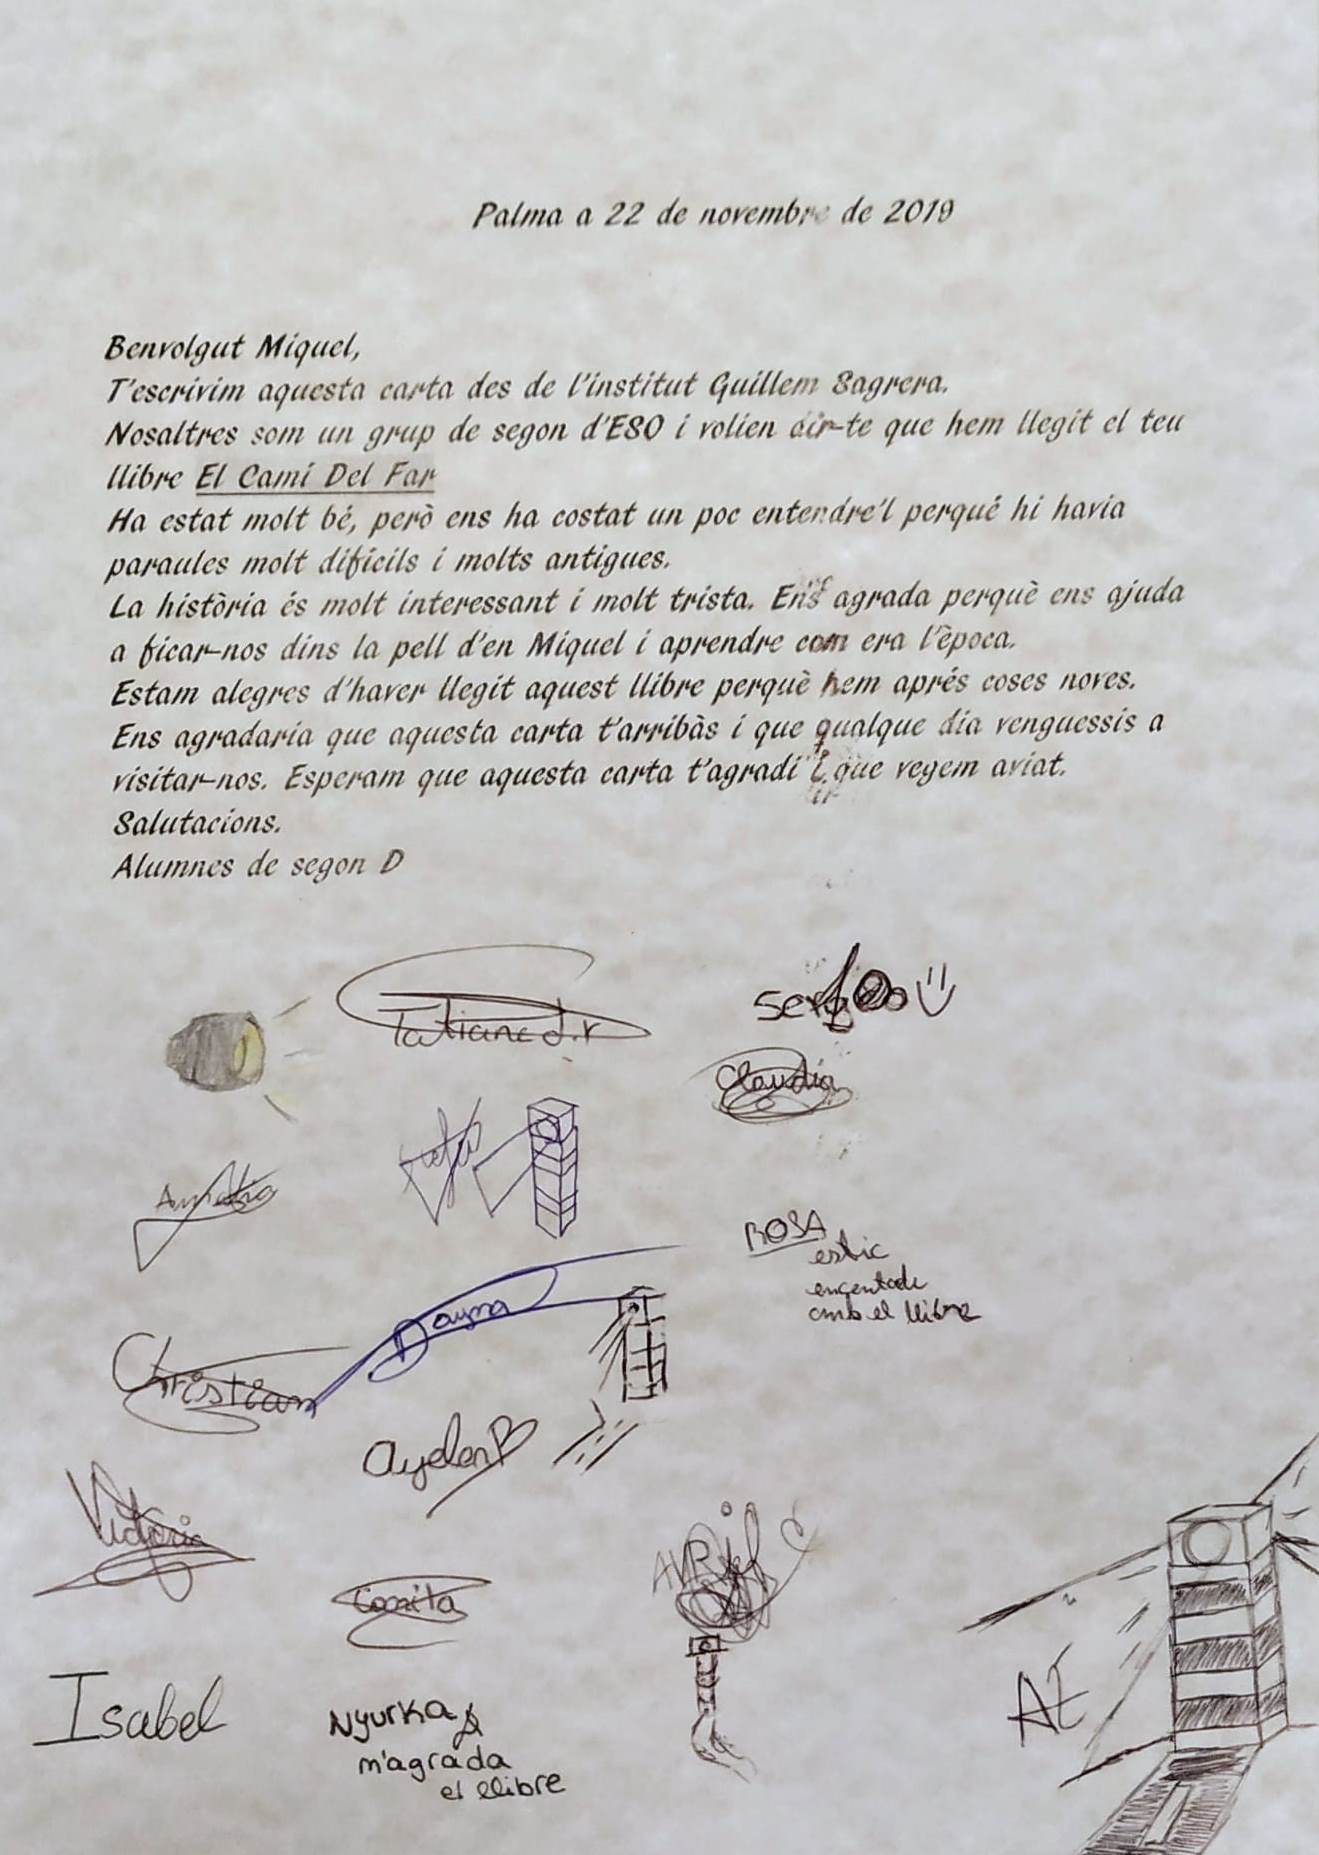 Palma a 22 de novembre de 2019
Benvolgut Miquel,
T'escrivim aquesta carta des de l'institut Guillem Sagrera.
Nosaltres som un grup de segon d'ESO i volien dir-te que hem llegit el teu
llibre El Camí Del Far
Ha estat molt bé, però ens ha costat un poc entendre'l perqué hi havia
paraules molt difícils i molts antigues.
La història és molt interessant i molt trista. Ens agrada perquè ens ajuda
a ficar-nos dins la pell d'en Miquel i aprendre com era l'època.
Estam alegres d'haver llegit aquest llibre perquè hem aprés coses noves.
Ens agradaria que aquesta carta t'arribàs i que qualque dia venguessis a
visitar-nos. Esperam que aquesta carta t'agradi i que vegem aviat.
Salutacions.
Alumnes de segon D
Tatiana J.r
Sergio
Claudia
ROSA
estic
encantada
amb el llibre
Dayna
Christian
Ayelen
Victòria
AVRil
Isabel
Nyurka
m'agrada
el llibre